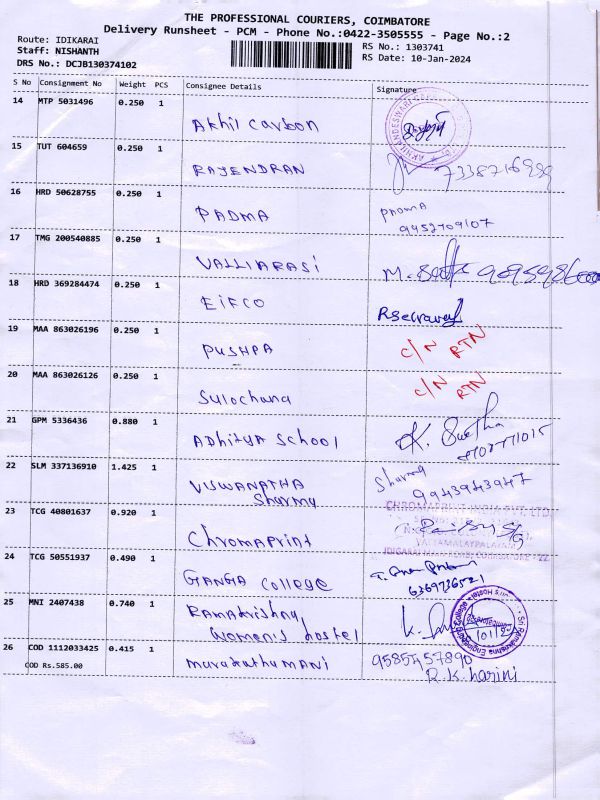 THE PROFESSIONAL COURIERS, COIMBATORE
Delivery Runsheet - PCM - Phone No.:0422-3505555 - Page No.:2
Route: IDIKARAI
RS No.: 1303741
Staff: NISHANTH
RS Date: 10-Jan-2024
DRS No.: DCJB130374102
S No Consignment No Weight PCS Consignee Details Signature
14 MTP 5031496 0.250 1
Akhil Carbon
15 TUT 604659 0.250 1
RAJENDRAN
16 HRD 50628755 0.250 1
PADMA
9952709107
17 TMG 200540885 0.250 1
VALLIARASI
18 HRD 369284474 0.250 1
EIFCO
19 MAA 863026196 0.250 1
PUSHPA C/N RTN
20 MAA 863026126 0.250 1
Sulochana C/N RTN
21 GPM 5336436 0.880 1
ADhitya School K. Swetha
22 SLM 337136910 1.425 1
VISWANATHA
Sharma
9943943947
23 TCG 40801637 0.920 1
CHROMAPRINT INDIA PVT. LTD
ChromaPrint
24 TCG 50551937 0.490 1
GANGA College
6369736521
25 MNI 2407438 0.740 1
Ramakrishna
Women's hostel
26 COD 1112033425 0.415 1
COD Rs.585.00
Maruthathu MANi 9585457890
R.K. harini